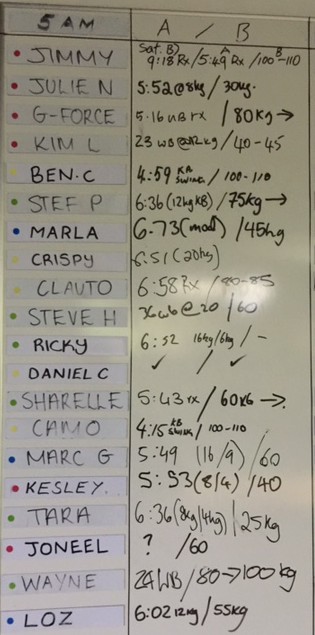 5 AM A / B
JIMMY Sat. B) 9:18 Rx / 5:49 Rx A / 100-110 B
JULIE N 5:52 @8kg / 30kg.
G-FORCE 5·16 UB rx / 80kg →
KIM L 23 WB @12kg / 40-45
BEN·C 4:59 KB SWING / 100-110
STEF P 6:36 (12kg KB) / 75kg →
MARLA 6.73 (mod) / 45kg
CRISPY 6.51 (20kg)
CLAUTO 6:58 Rx / 80-85
STEVE H 36 wb @ 20 / 60
RICKY 6:52 16kg/6kg / -
DANIEL C ✓ / ✓
SHARELLE 5:43 rx / 60KG →
CAMO 4:15 KB SWING / 100-110
MARC G 5:49 (16/9) / 60
KESLEY. 5:53 (8/4) / 40
TARA 6:36 (8kg/4kg) / 25kg
JONEEL ? / 60
WAYNE 24 WB / 80 → 100 kg
LOZ 6:02 12kg / 55kg